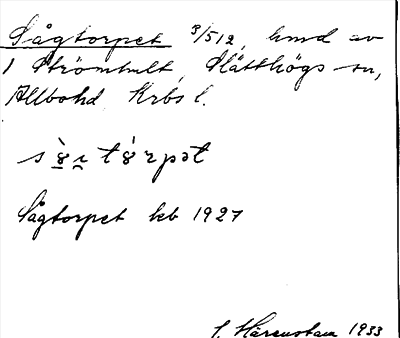 Sågtorpet 3/512, hmd av
1 Strömhult, Slätthögs sn,
Allbo hd Krbs l.
Sågtorpet kb 1927
J. Härenstam 1933